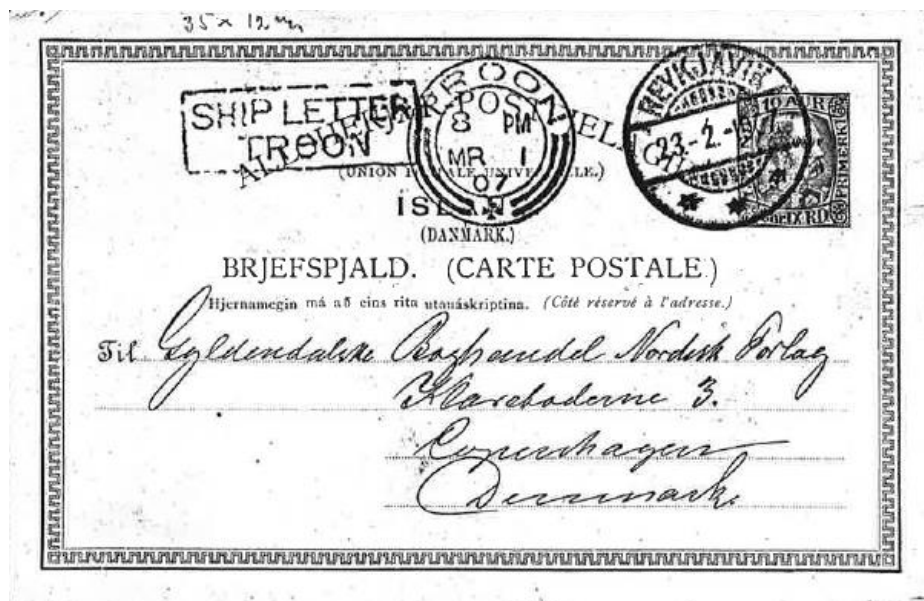 35 x 12 mm
SHIP LETTER
TROON
TROON
8 PM
MR 1
07
REYKJAVIK
23.-2.-
10 AUR
FRIMERKI
CHR.IX.RD.
(UNION POSTALE UNIVERSELLE.)
ÍSLAND
(DANMARK.)
BRJEFSPJALD. (CARTE POSTALE)
Hjernamegin má að eins rita utanáskriptina. (Côté réservé à l'adresse.)
Til Gyldendalske Boghandel Nordisk Forlag
Klareboderne 3.
Copenhagen
Denmark.